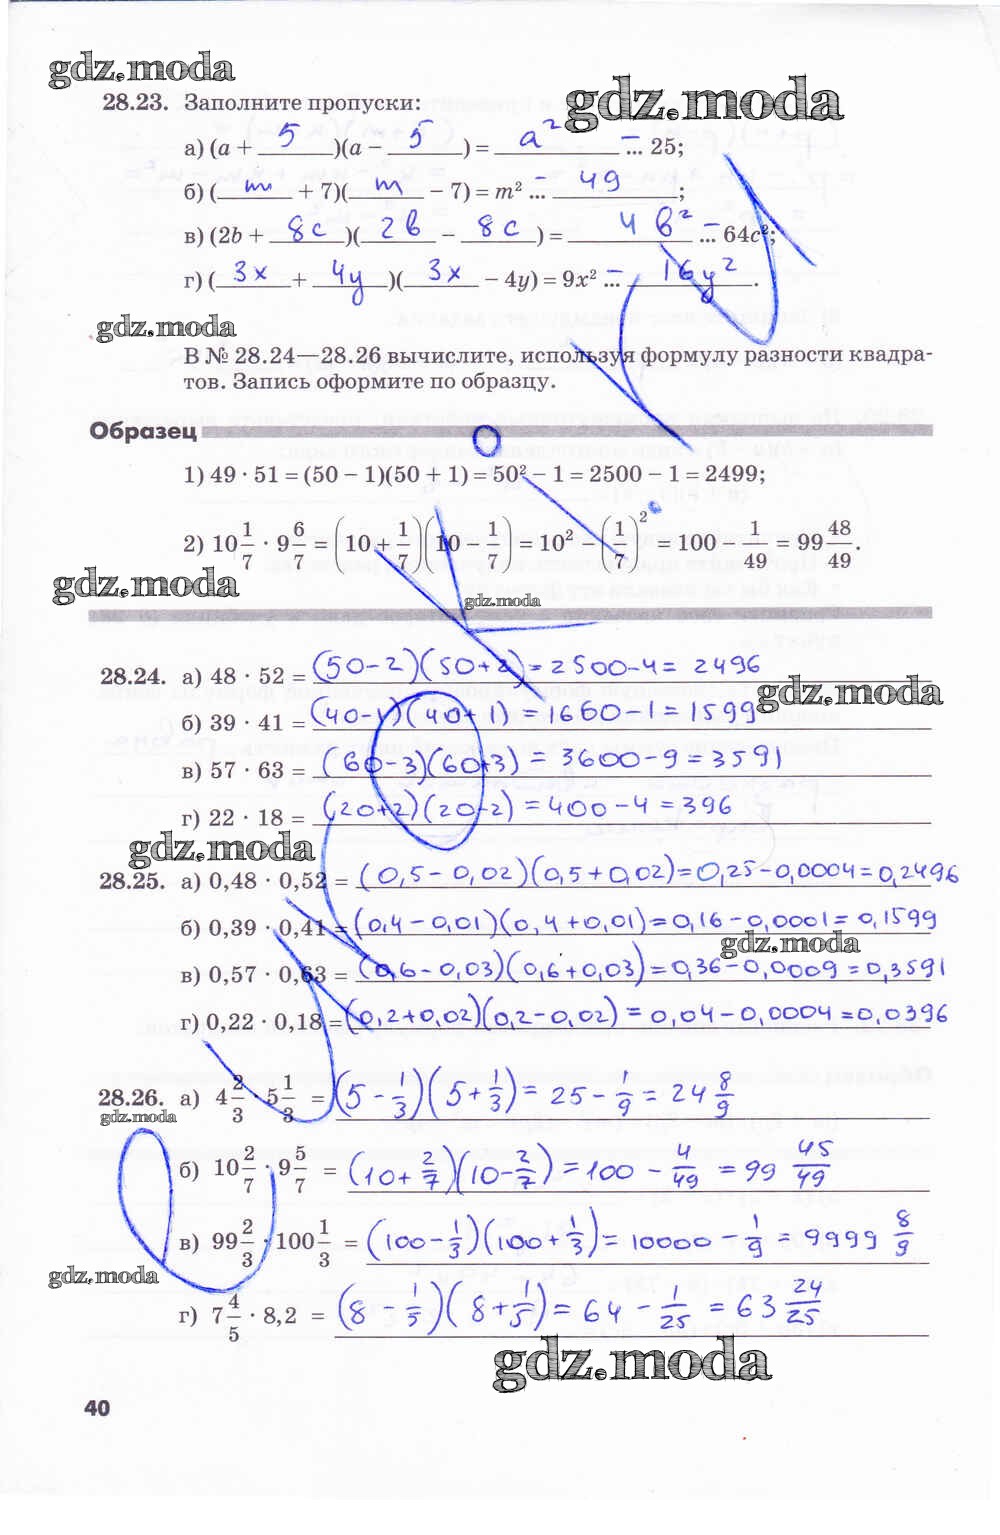 gdz.moda
28.23. Заполните пропуски:
gdz.moda
а) (a + 5)(a − 5) = a² − ... 25;
б) (m + 7)(m − 7) = m² ... − 49;
в) (2b + 8c)(2b − 8c) = 4b² − ... 64c²;
г) (3x + 4y)(3x − 4y) = 9x² ... − 16y².
gdz.moda
В № 28.24—28.26 вычислите, используя формулу разности квадра-
тов. Запись оформите по образцу.
Образец
1) 49 · 51 = (50 − 1)(50 + 1) = 50² − 1 = 2500 − 1 = 2499;
2) 10 1/7 · 9 6/7 = (10 + 1/7)(10 − 1/7) = 10² − (1/7)² = 100 − 1/49 = 99 48/49.
gdz.moda
gdz.moda
28.24. а) 48 · 52 = (50−2)(50+2) = 2500−4 = 2496
gdz.moda
б) 39 · 41 = (40−1)(40+1) = 1600−1 = 1599
в) 57 · 63 = (60−3)(60+3) = 3600−9 = 3591
г) 22 · 18 = (20+2)(20−2) = 400−4 = 396
gdz.moda
28.25. а) 0,48 · 0,52 = (0,5−0,02)(0,5+0,02) = 0,25−0,0004 = 0,2496
б) 0,39 · 0,41 = (0,4−0,01)(0,4+0,01) = 0,16−0,0001 = 0,1599
gdz.moda
в) 0,57 · 0,63 = (0,6−0,03)(0,6+0,03) = 0,36−0,0009 = 0,3591
г) 0,22 · 0,18 = (0,2+0,02)(0,2−0,02) = 0,04−0,0004 = 0,0396
28.26. а) 4 2/3 · 5 1/3 = (5 − 1/3)(5 + 1/3) = 25 − 1/9 = 24 8/9
gdz.moda
б) 10 2/7 · 9 5/7 = (10 + 2/7)(10 − 2/7) = 100 − 4/49 = 99 45/49
в) 99 2/3 · 100 1/3 = (100 − 1/3)(100 + 1/3) = 10000 − 1/9 = 9999 8/9
gdz.moda
г) 7 4/5 · 8,2 = (8 − 1/5)(8 + 1/5) = 64 − 1/25 = 63 24/25
gdz.moda
40